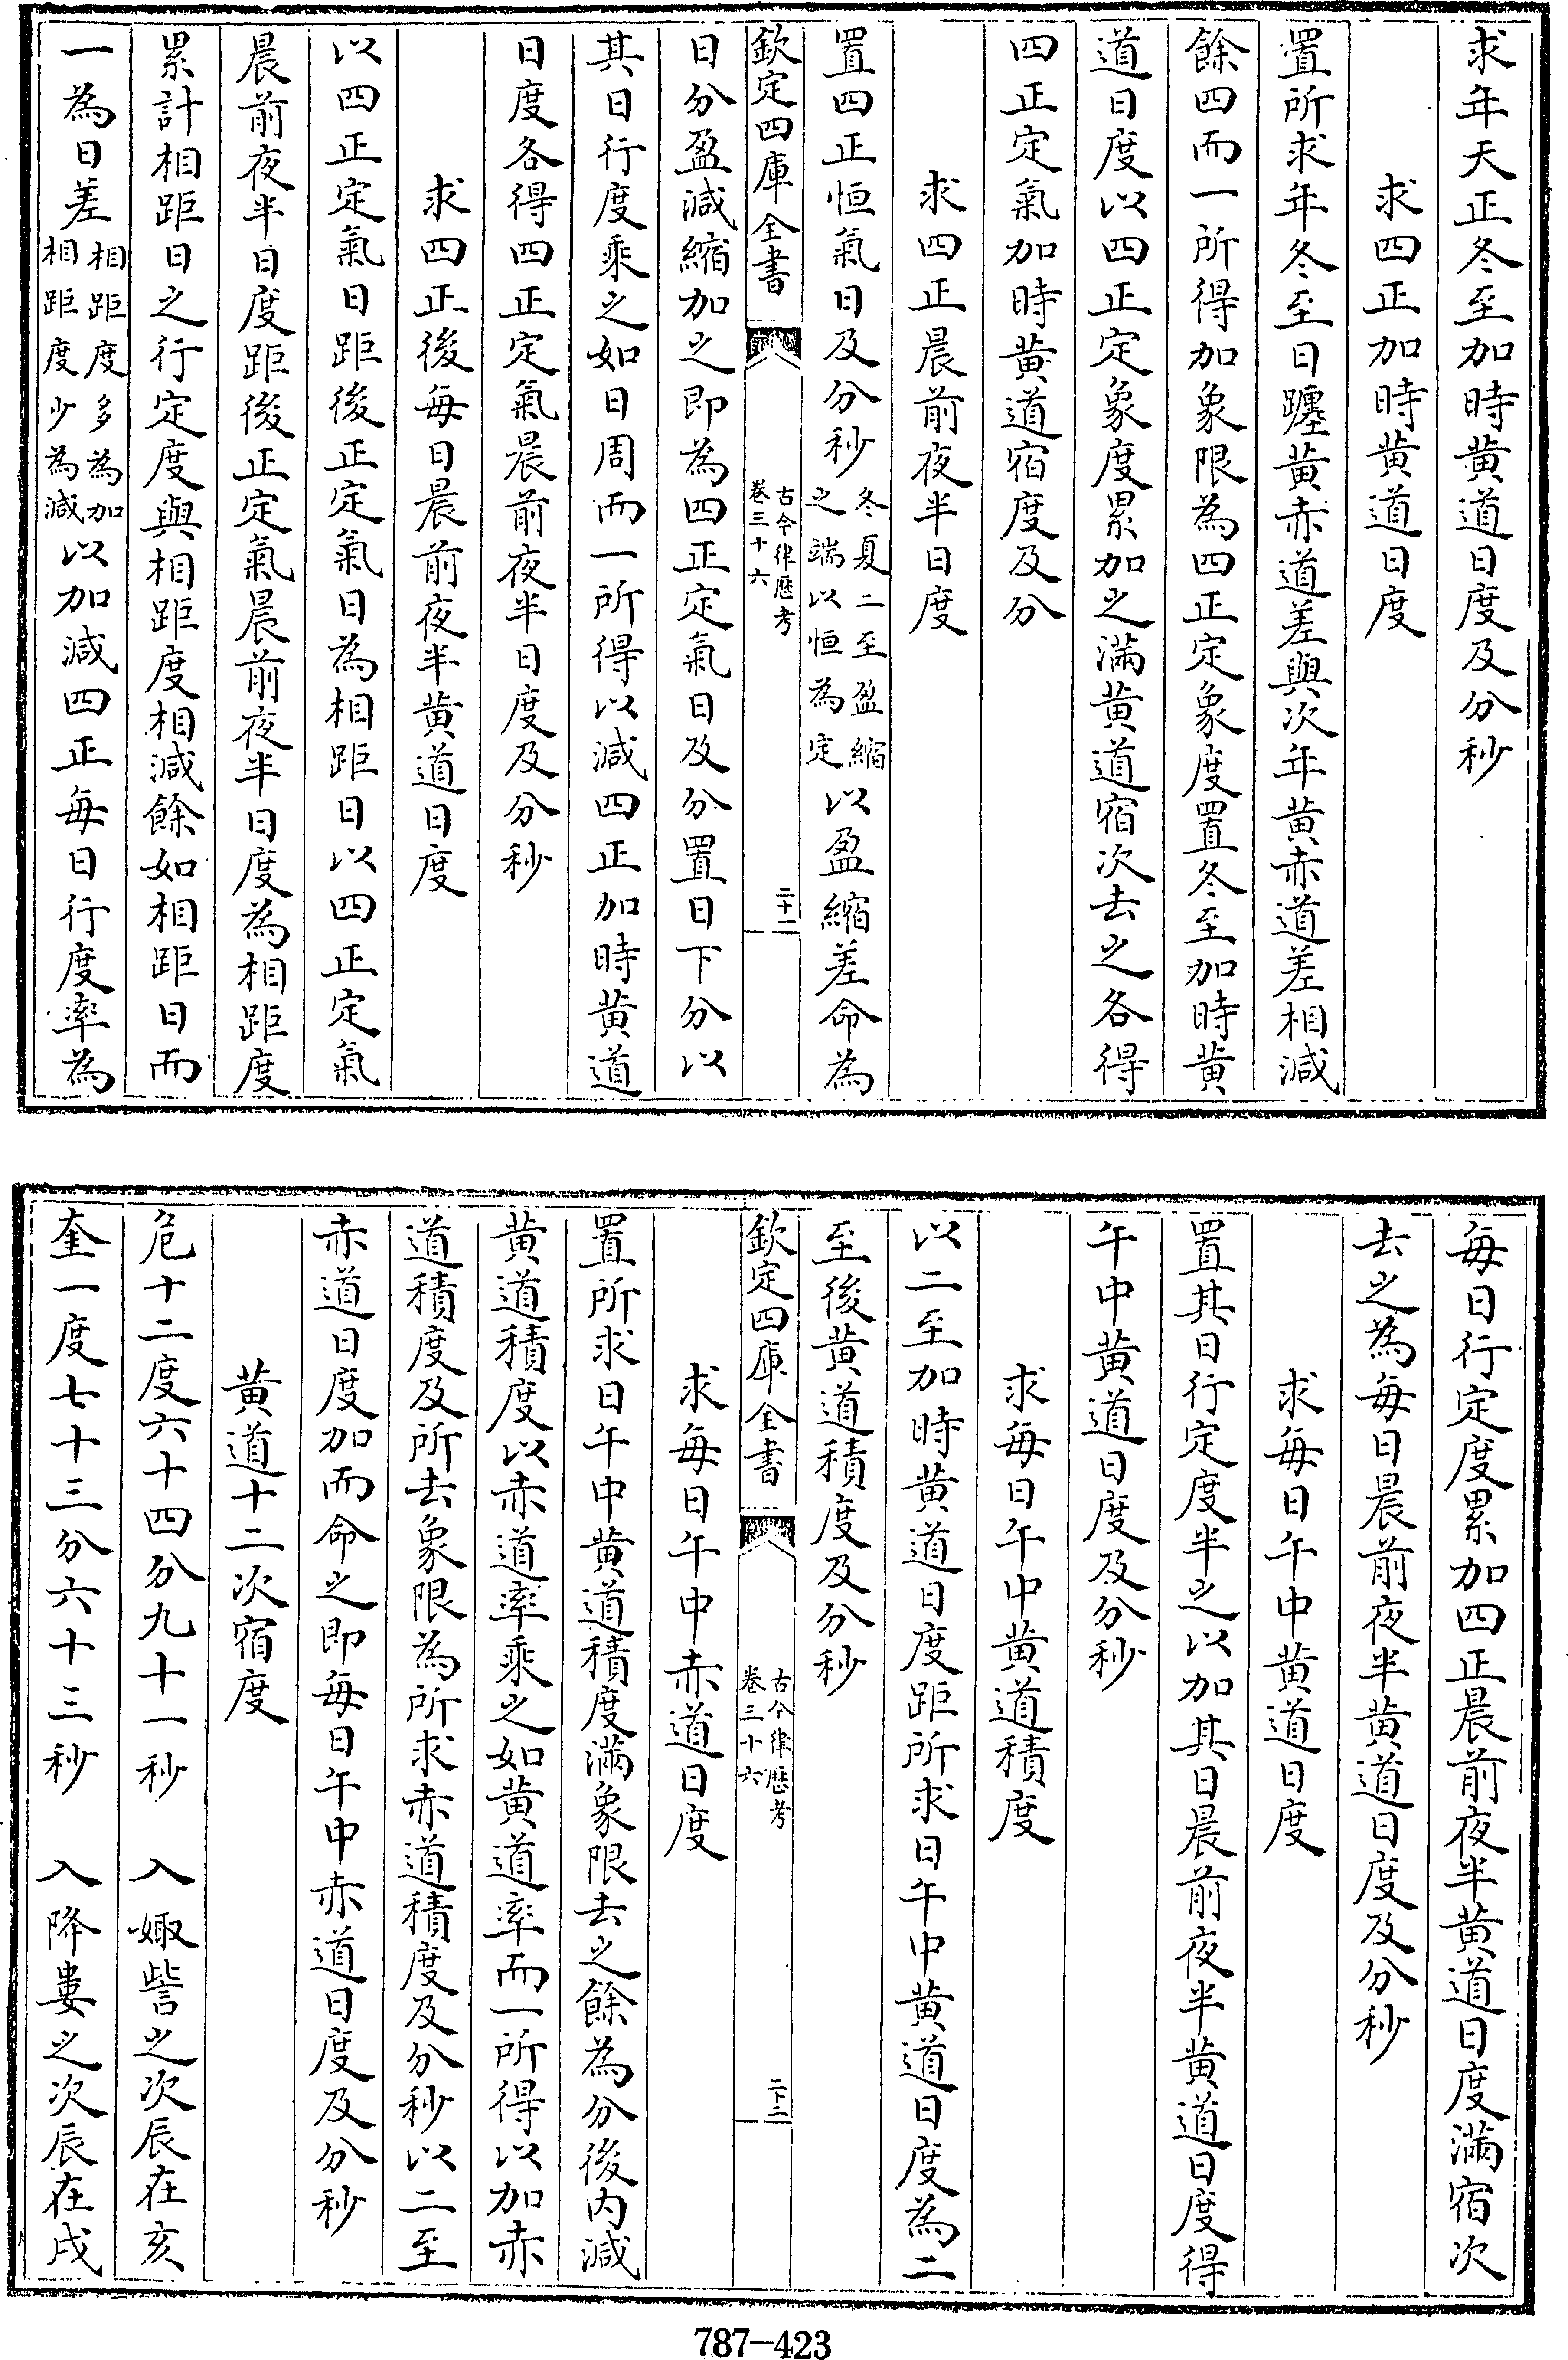 求年天正冬至加時黄道日度及分秒
求四正加時黄道日度
置所求年冬至日躔黄赤道差與次年黄赤道差相減
餘四而一所得加象限為四正定象度置冬至加時黄
道日度以四正定象度累加之滿黄道宿次去之各得
四正定氣加時黄道宿度及分
求四正晨前夜半日度
置四正恒氣日及分秒冬夏二至盈縮之端以恒為定以盈縮差命為
欽定四庫全書
古今律歷考
卷三十六
二十一
日分盈減縮加之即為四正定氣日及分置日下分以
其日行度乘之如日周而一所得以減四正加時黄道
日度各得四正定氣晨前夜半日度及分秒
求四正後每日晨前夜半黄道日度
以四正定氣日距後正定氣日為相距日以四正定氣
晨前夜半日度距後正定氣晨前夜半日度為相距度
累計相距日之行定度與相距度相減餘如相距日而
一為日差相距度多為加相距度少為減以加減四正每日行度率為
每日行定度累加四正晨前夜半黄道日度滿宿次
去之為每日晨前夜半黄道日度及分秒
求每日午中黄道日度
置其日行定度半之以加其日晨前夜半黄道日度得
午中黄道日度及分秒
求每日午中黄道積度
以二至加時黄道日度距所求日午中黄道日度為二
至後黄道積度及分秒
欽定四庫全書
古今律歷考
卷三十六
二十二
求每日午中赤道日度
置所求日午中黄道積度滿象限去之餘為分後内減
黄道積度以赤道率乘之如黄道率而一所得以加赤
道積度及所去象限為所求赤道積度及分秒以二至
赤道日度加而命之即每日午中赤道日度及分秒
黄道十二次宿度
危十二度六十四分九十一秒　入娵訾之次辰在亥
奎一度七十三分六十三秒　入降婁之次辰在戌
787-423